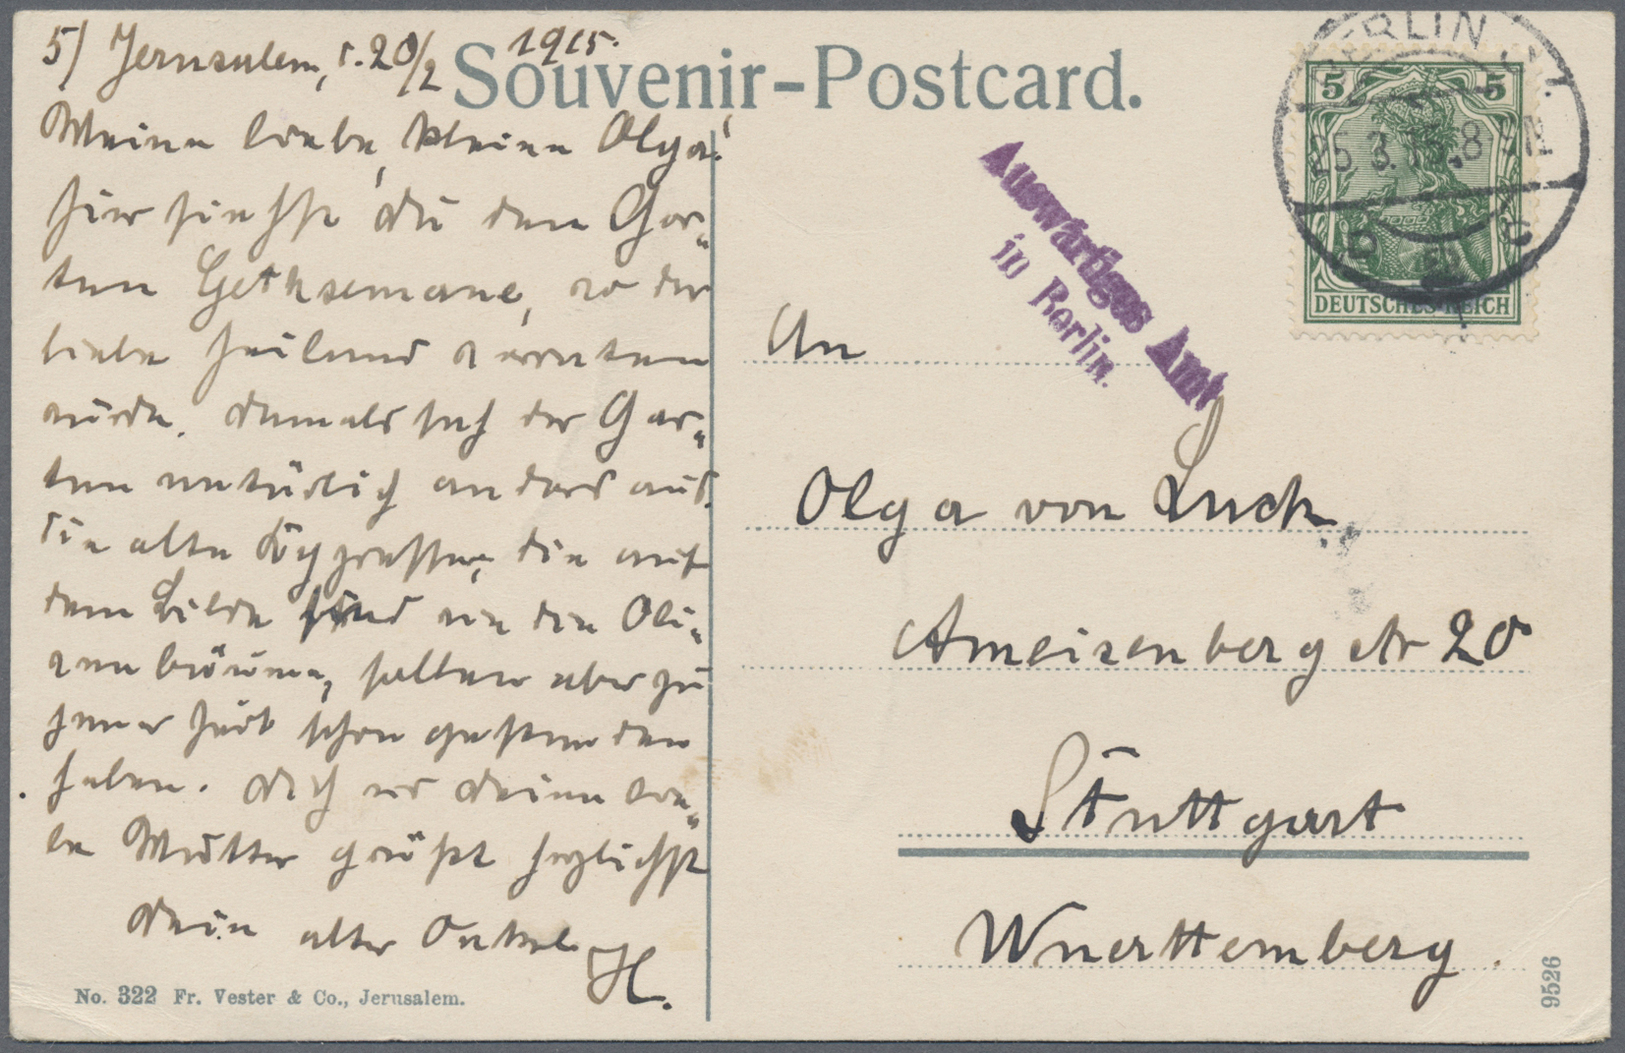 5) Jerusalem, d. 20/2 1915.
Souvenir-Postcard.
Meine liebe, kleine Olga!
hier siehst du den Gar-
ten Gethsemane, wo der
liebe Heiland verraten
wurde. Damals sah der Gar-
ten natürlich anders aus.
Die alte Cypressen, die auf
dem Bilde sind wie die Oli-
venbäume, sollen aber zu
jener Zeit schon gestanden
haben. Dich und deine lie-
be Mutter grüßt herzlichst
dein alter Onkel
H.
No. 322 Fr. Vester & Co., Jerusalem.
Auswärtiges Amt
in Berlin.
BERLIN W.
25.3.15. 8-9N
DEUTSCHES REICH
5 5
An
Olga von Luck
Ameisenbergstr 20
Stuttgart
Wuerttemberg.
9526